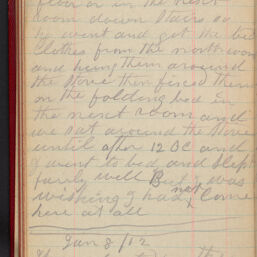 floor or in the next
room down stairs so
I went and got the bed
Clothes from the north room
and hung them around
the stove then fixed them
on the folding bed in
the next room and
we sat around the stove
until after 12 OC and
I went to bed and slept
fairly well But I was
wishing I had not Come
here at all
Jan 8/12